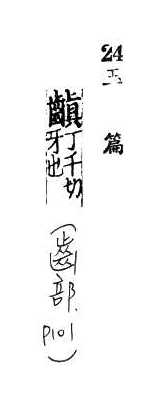 24 玉篇
齻丁千切
牙也
(齒部. P101)